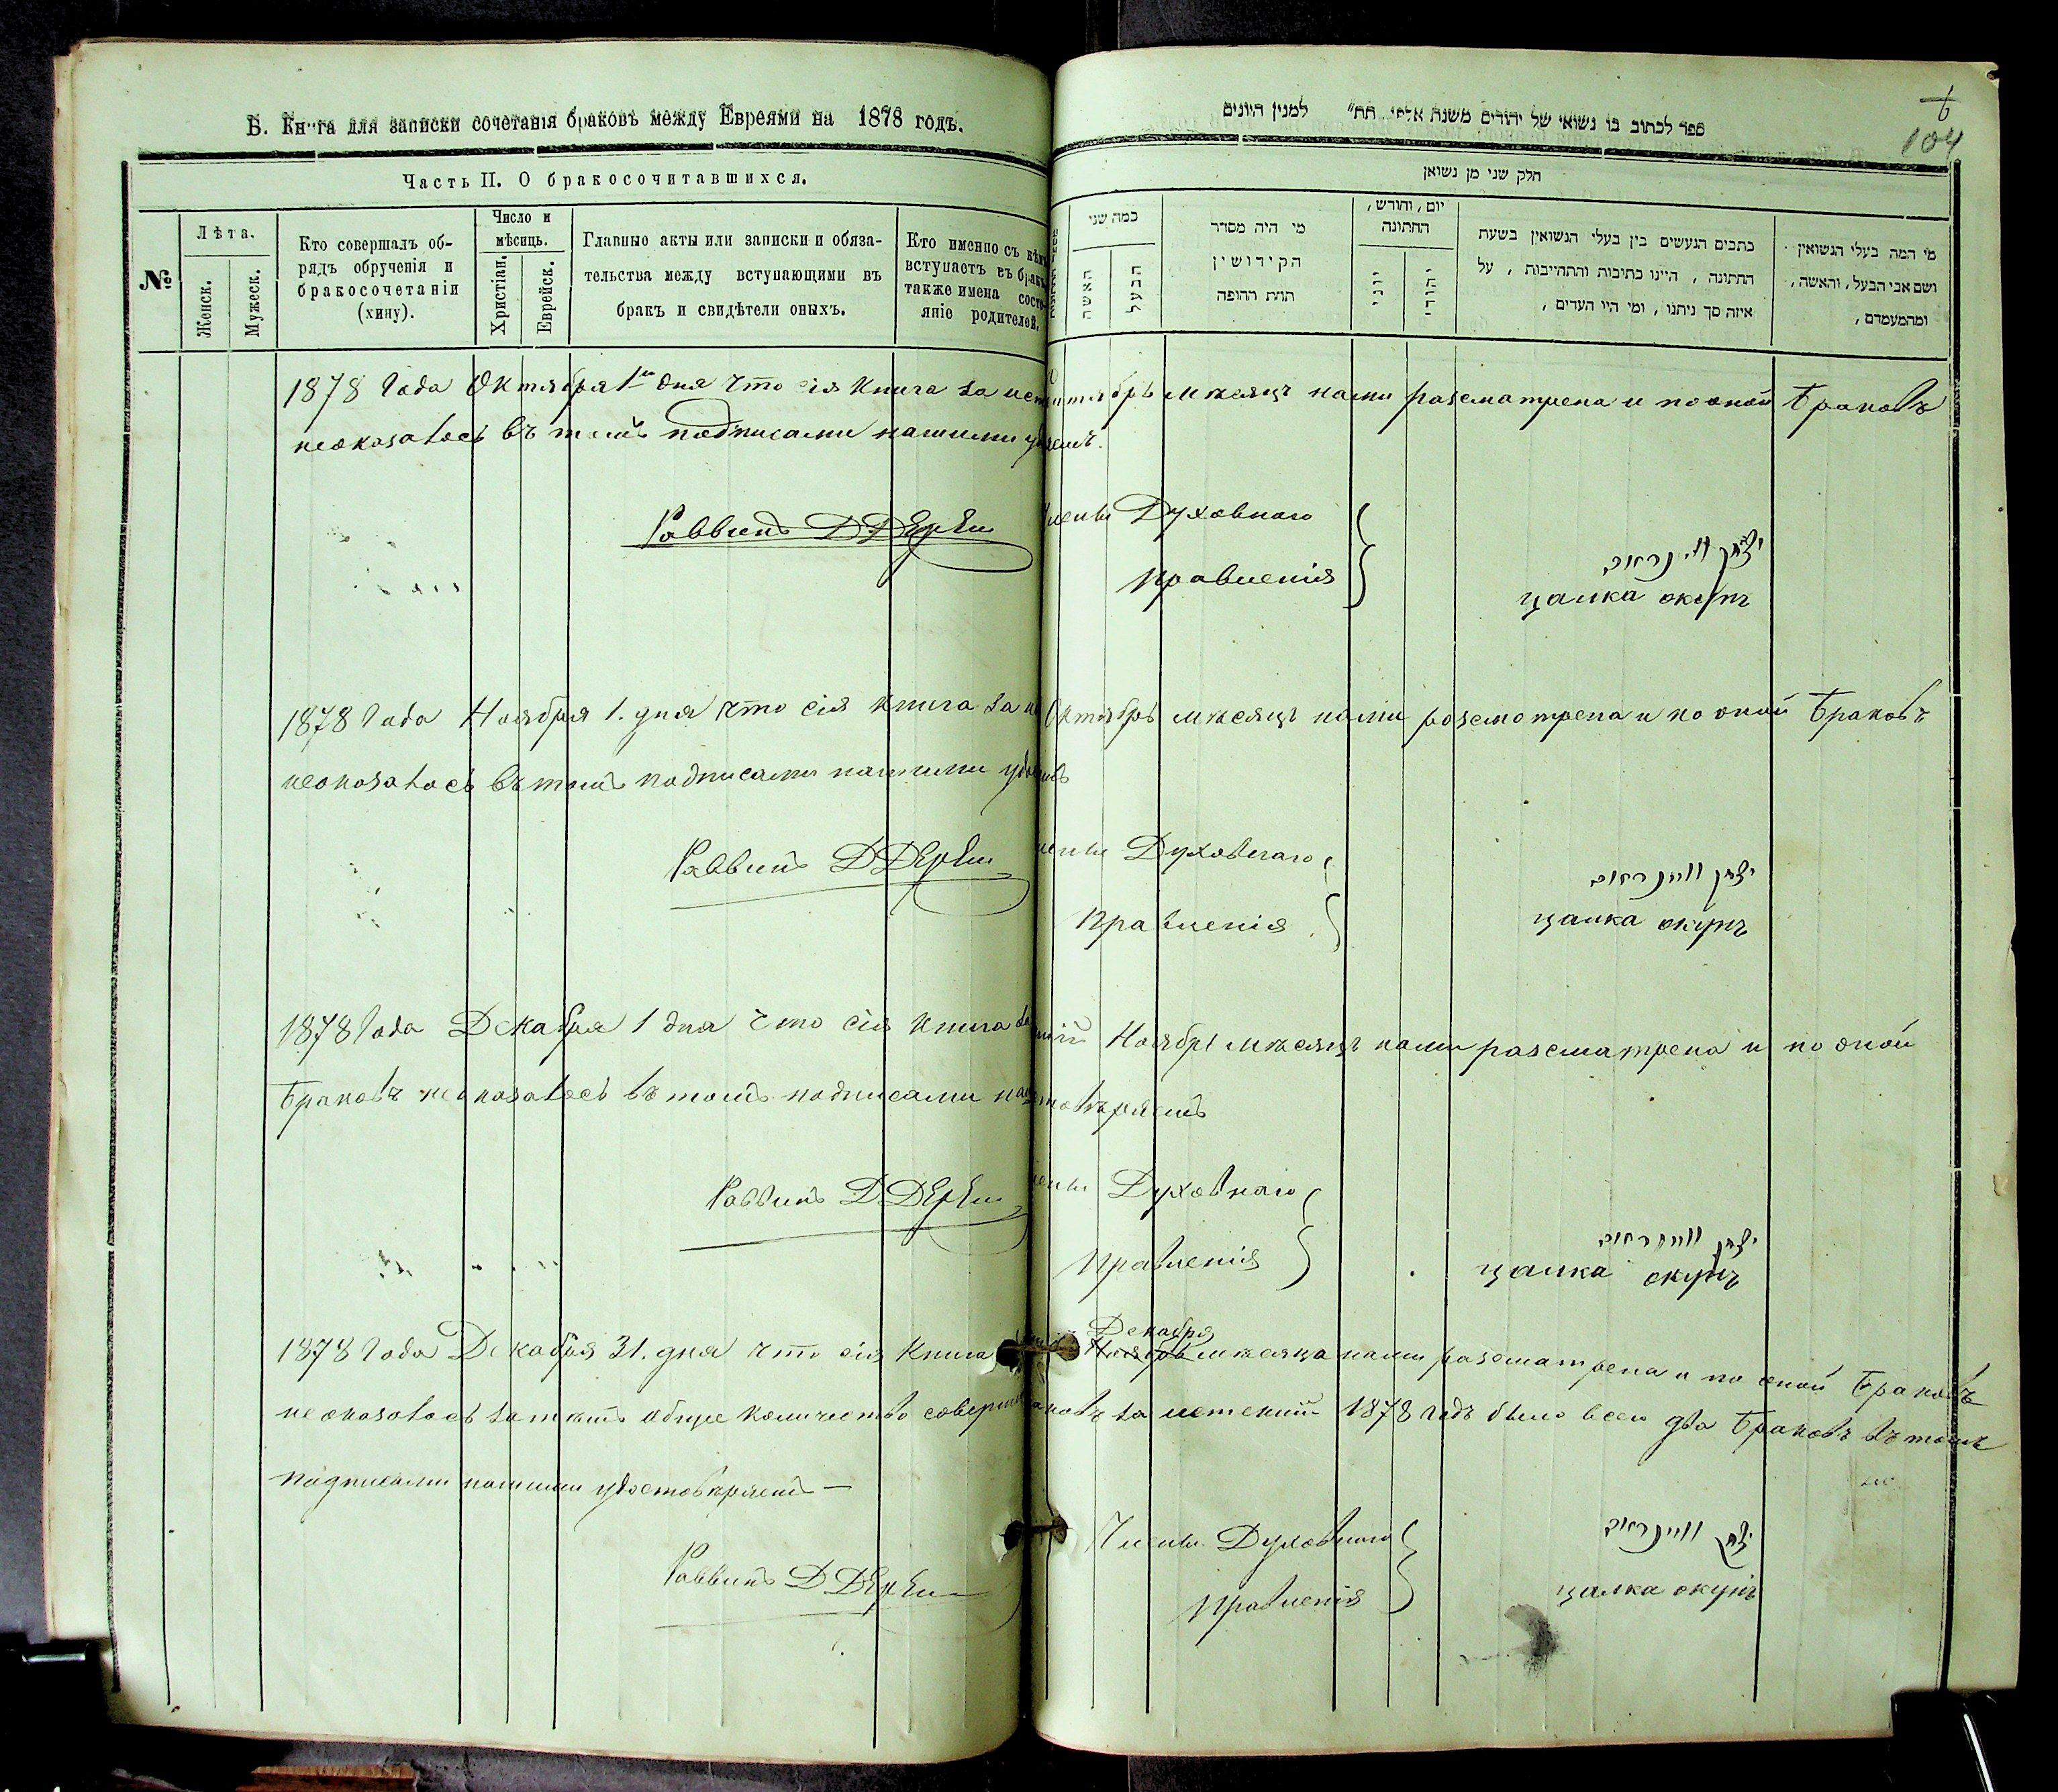 Б. Книга для записки сочетанія браковъ между Евреями на 1878 годъ.
Часть II. О бракосочитавшихся.
№
Лѣта.
Женск.
Мужеск.
Кто совершалъ об-
рядъ обрученія и
бракосочетаніи
(хину).
Число и
мѣсяцъ.
Христіан.
Еврейск.
Главные акты или записки и обяза-
тельства между вступающими въ
бракъ и свидѣтели оныхъ.
Кто именно съ кѣмъ
вступаетъ въ бракъ
также имена состо-
яніе родителей.
6
104
ספר לכתוב בו נשואי של יהודים משנת אלפי תת" למנין היונים
חלק שני מן נשואן
כמה שני
האשה
הבעל
מי היה מסדר
הקידושין
תחת החופה
יום, וחודש,
החתונה
יוני
יהודי
כתבים הנעשים בין בעלי הנשואין בשעת
החתונה, היינו כתיבות והתחייבות, על
איזה סך ניתנו, ומי היו העדים,
מי המה בעלי הנשואין
ושם אבי הבעל, והאשה,
ומהמעמדם,
1878 Года Октября 1го дня что сія Книга за сентябрь мѣсяцъ нами разсматрена и по оной Браковъ
неоказалось въ томъ подписами нашими
Раввинъ Д
Духовнаго
Правленія
יצחק
цалка окунь
1878 Года Ноября 1. дня что сія книга за Октябрь мѣсяцъ нами розсмотрена и по оной Браковъ
неоказалось въ томъ подписами нашими
Раввинъ Д
Духовнаго
Правленія
יצחק
цалка окунь
1878 Года Декабря 1 дня что сія книга Ноябрь мѣсяцъ нами разсматрена и по оной
Браковъ неоказалось въ томъ подписами
Раввинъ Д
Духовнаго
Правленія
יצחק
цалка окунь
1878 Года Декабря 31. дня что сія книга Декабря мѣсяца нами разсматрена и по оной Браковъ
неоказалось затѣмъ общее количество за истекшій 1878 годъ было всего два Браковъ въ томъ
подписами нашими удостовѣряемъ —
Раввинъ Д
Члены Духовнаго
Правленія
יצחק
цалка окунь